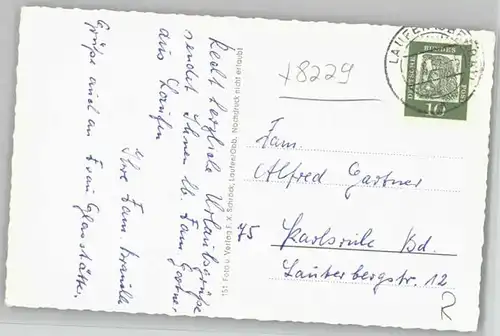 Recht herzliche Urlaubsgrüße
sendet Ihnen lb. Fam. Gartner
aus Laufen
Ihre Fam.
Grüße auch an Frau
151 Foto u. Verlag F. X. Schröck, Laufen/Obb. Nachdruck nicht erlaubt
+8229
LAUFEN
DEUTSCHE
BUNDES
POST
10
Fam.
Alfred Gartner
75 Karlsruhe Bd.
Lauterbergstr. 12